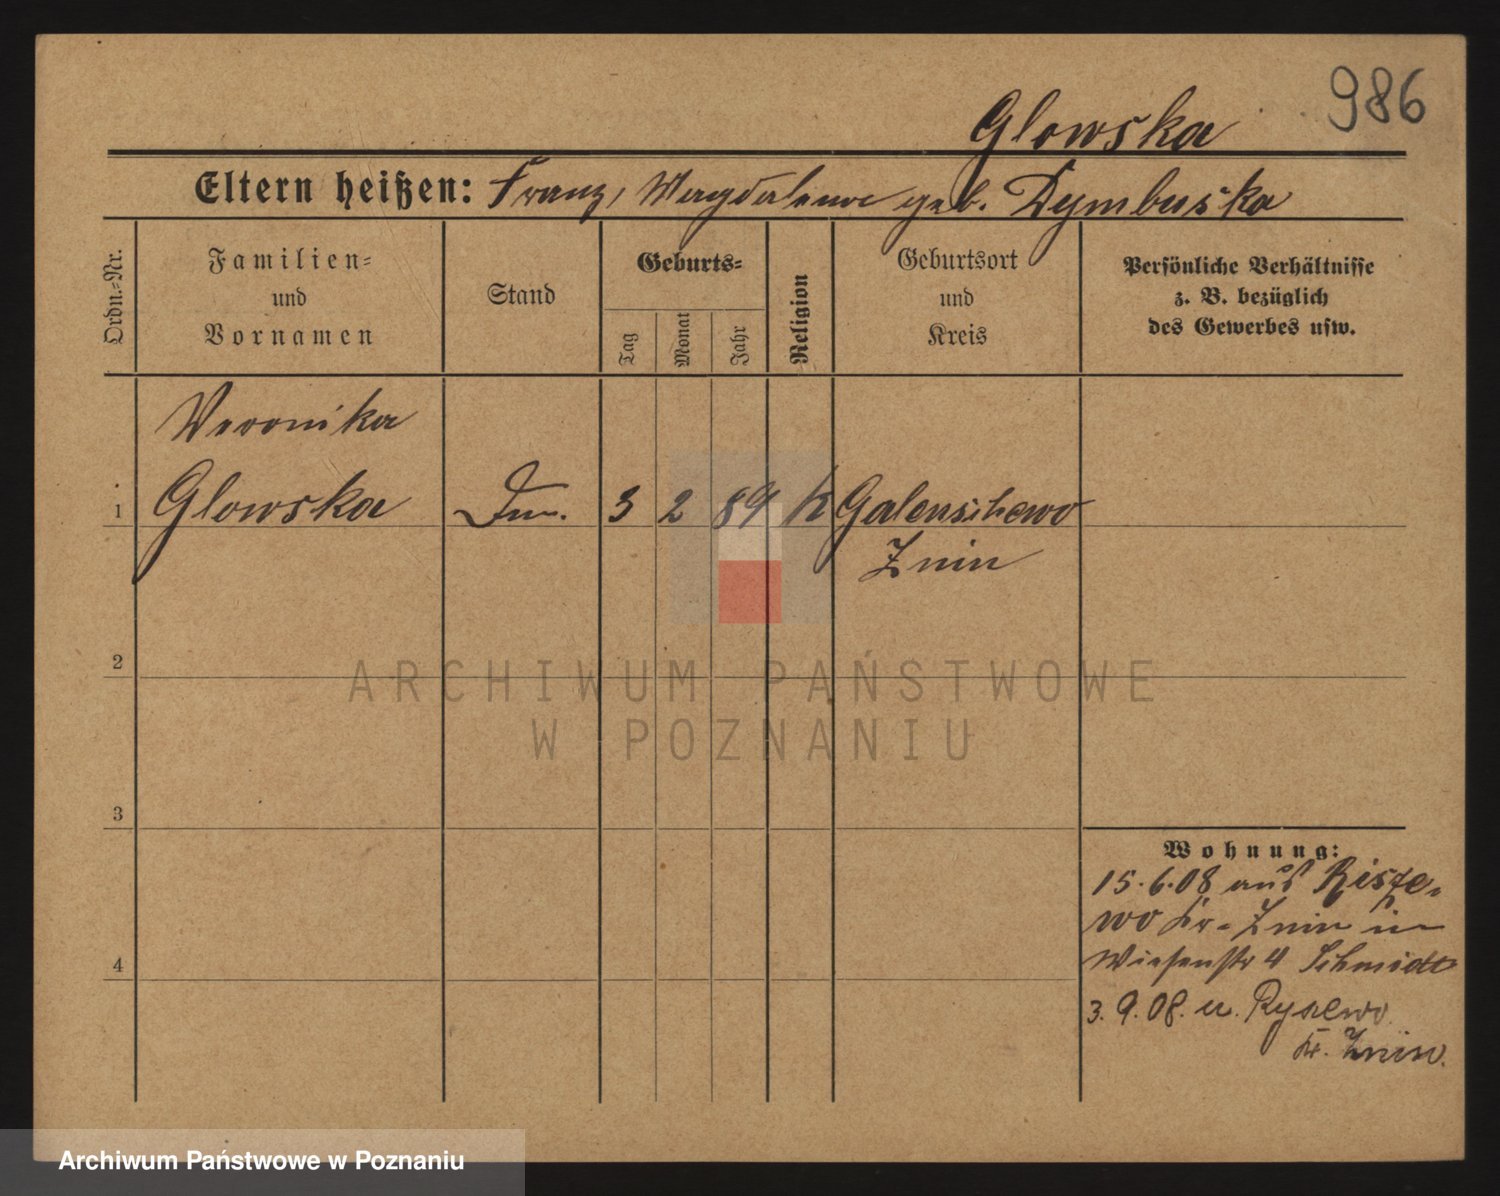 986
Glowska
Eltern heißen: Franz, Magdalena geb. Dymbuska
Ordn.-Nr.
Familien-
und
Vornamen
Stand
Geburts-
Tag
Monat
Jahr
Religion
Geburtsort
und
Kreis
Persönliche Verhältnisse
z. B. bezüglich
des Gewerbes usw.
Veronika
1 Glowska 3 2 89 k Galenschewo
Znin
2
ARCHIWUM PAŃSTWOWE
W POZNANIU
3
Wohnung:
15.6.08 aus Risze-
wo Kr. Znin in
4 Wiesenstr 4 Schmidt
3.9.08. n. Ryszewo
Kr. Znin.
Archiwum Państwowe w Poznaniu